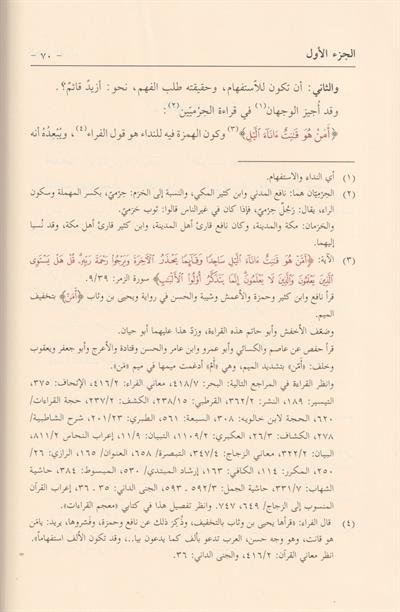 الجزء الأول - ٧٠ -
والثاني: أن تكون للاستفهام، وحقيقته طلب الفهم، نحو: أزيدٌ قائمٌ؟.
وقد أُجيز الوجهان(١) في قراءة الحِرْمِيّين(٢):
﴿أَمَنْ هُوَ قَانِتٌ ءَانَاءَ الَّيْلِ﴾(٣) وكون الهمزة فيه للنداء هو قول الفراء(٤)، ويُبْعِدُهُ أنه
(١) أي النداء والاستفهام.
(٢) الحِرْمِيّان هما: نافع المدني وابن كثير المكي، والنسبة إلى الحَرَم: حِرْميّ، بكسر المهملة وسكون
الراء، يقال: رَجُلٌ حِرْميّ، فإذا كان في غيرالناس قالوا: ثوب حَرَميّ.
والحَرَمان: مكة والمدينة، وكان نافع قارئ أهل المدينة، وابن كثير قارئ أهل مكة، وقد نُسبا
إليهما.
(٣) الآية: ﴿أَمَّنْ هُوَ قَانِتٌ ءَانَاءَ الَّيْلِ سَاجِدًا وَقَائِمًا يَحْذَرُ الْآخِرَةَ وَيَرْجُوا رَحْمَةَ رَبِّهِ قُلْ هَلْ يَسْتَوِي
الَّذِينَ يَعْلَمُونَ وَالَّذِينَ لَا يَعْلَمُونَ إِنَّمَا يَتَذَكَّرُ أُوْلُوا الْأَلْبَابِ﴾ سورة الزمر: ٩/٣٩.
قرأ نافع وابن كثير وحمزة والأعمش وشيبة والحسن في رواية ويحيى بن وثاب ﴿أَمَنْ﴾ بتخفيف
الميم.
وضعّف الأخفش وأبو حاتم هذه القراءة، وردّ هذا عليهما أبو حيان.
قرأ حفص عن عاصم والكسائي وأبو عمرو وابن عامر والحسن وقتادة والأعرج وأبو جعفر ويعقوب
وخلف: «أمّن» بتشديد الميم، وهي «أَمْ» أدغمت ميمها في ميم «مَن».
وانظر القراءة في المراجع التالية: البحر: ٤١٨/٧، معاني الفراء: ٤١٦/٢، الإتحاف: ٣٧٥،
التيسير: ١٨٩، النشر: ٣٦٢/٢، القرطبي: ٢٣٨/١٥، الكشف: ٢٣٧/٢، حجة القراءات/
٦٢٠، الحجة لابن خالويه: ٣٠٨، السبعة: ٥٦١، الطبري: ٢٠١/٢٣، شرح الشاطبية/
٢٧٨، الكشاف: ٢٦/٣، العكبري: ١١٠٩/٢، التبيان: ١١/٩، إعراب النحاس ٨١١/٢،
البيان: ٣٢٢/٢، معاني الزجاج: ٣٤٧/٤، التبصرة/ ٦٥٨، العنوان/ ١٦٥، الرازي: ٢٦/
٢٥٠، المكرر: ١١٤، الكافي: ١٦٣، إرشاد المبتدي/ ٥٣٠، المبسوط: ٣٨٤، حاشية
الشهاب: ٣٣١/٧، حاشية الجمل: ٥٩٢/٣ ـ ٥٩٣، الجنى الداني: ٣٥ ـ ٣٦، إعراب القرآن
المنسوب إلى الزجاج/ ٦٤٩، ٧٤٧. وانظر تفصيل هذا في كتابي «معجم القراءات».
(٤) قال الفراء: «قرأها يحيى بن وثاب بالتخفيف، وذُكِرَ ذلك عن نافع وحمزة، وفَسّروها، يريد: يامَن
هو قانت، وهو وجه حسن، العرب تدعو بألف كما يدعون بيا..، وقد تكون الألف استفهاماً».
انظر معاني القرآن: ٤١٦/٢، والجنى الداني: ٣٦.